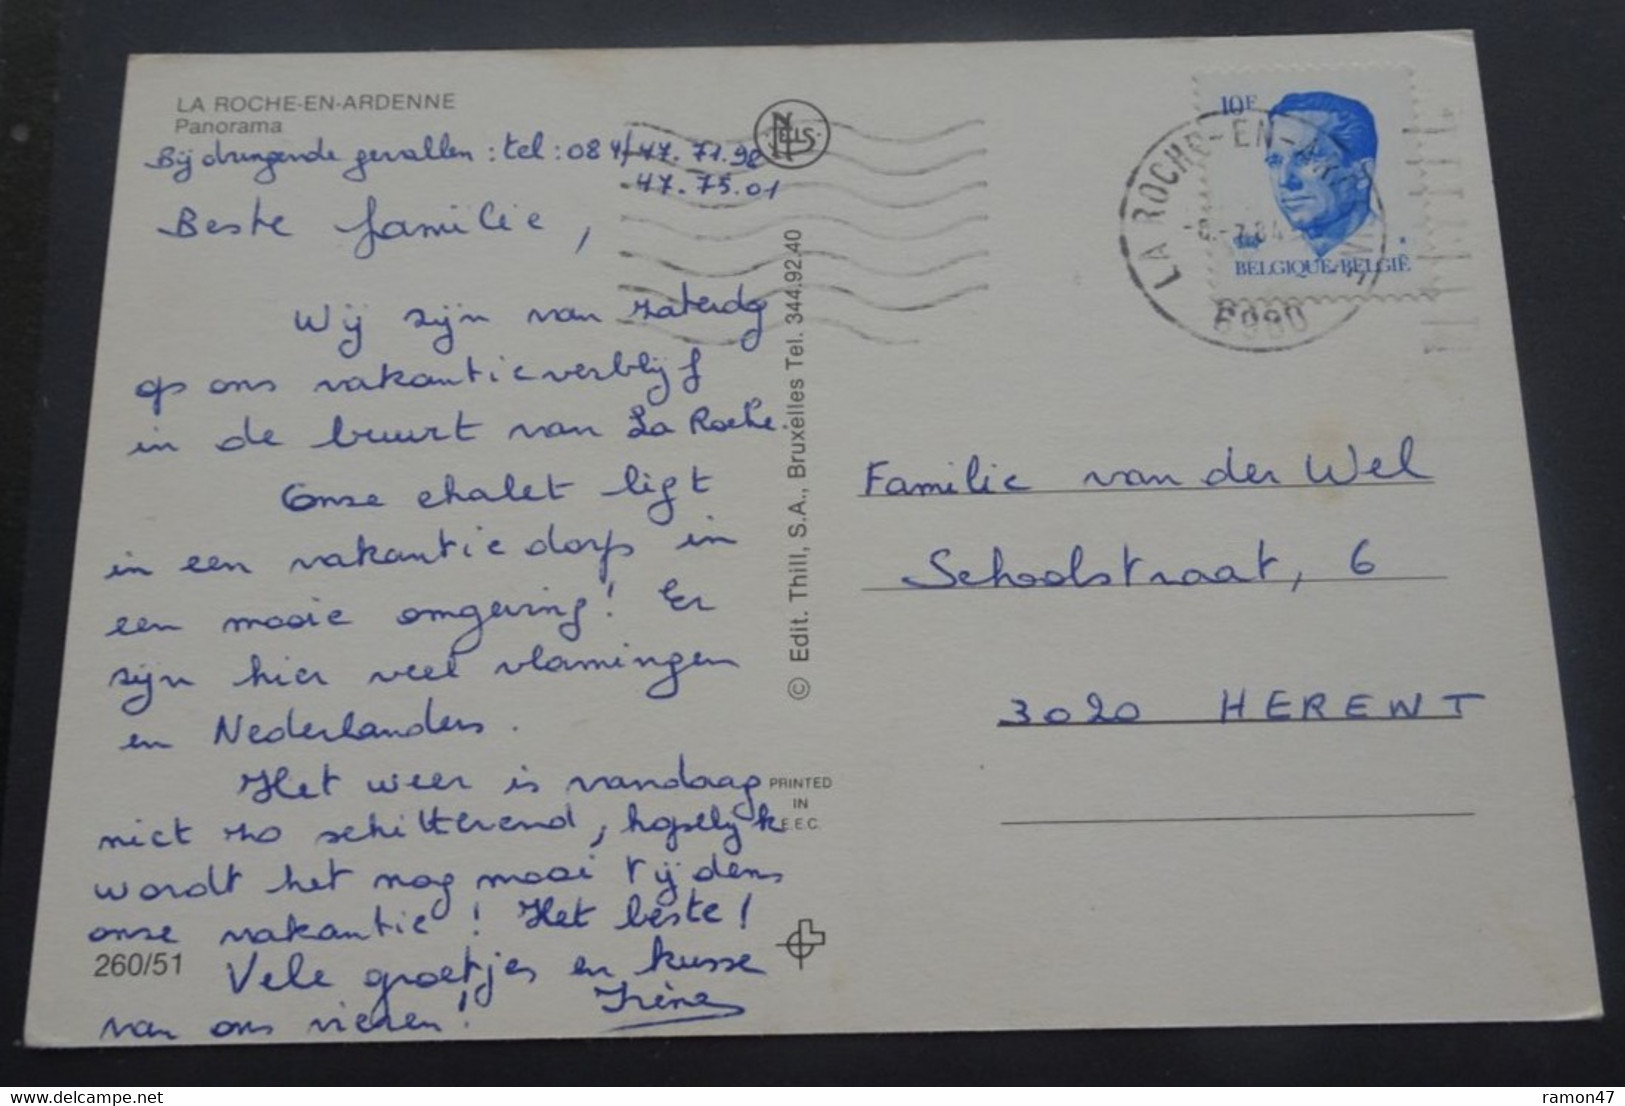 LA ROCHE-EN-ARDENNE
Panorama
Bij dringende gevallen : tel : 084/47.71.98
47.75.01
Beste familie,
Wij zijn van zaterdag
op ons vakantieverblijf
in de buurt van La Roche.
Onze chalet ligt
in een vakantiedorp in
een mooie omgeving! Er
zijn hier veel vlamingen
en Nederlanders.
Het weer is vandaag
niet zo schitterend, hopelijk
wordt het nog mooi tijdens
onze vakantie! Het beste!
260/51
Vele groetjes en kusse
van ons vieren!
Irène
NELS
© Edit. Thill, S.A., Bruxelles Tel. 344.92.40
PRINTED
IN
E.E.C.
10F
BELGIQUE-BELGIË
LA ROCHE-EN-
7.84
6980
Familie van der Wel
Schoolstraat, 6
3020 HERENT
delcampe.net
ramon47